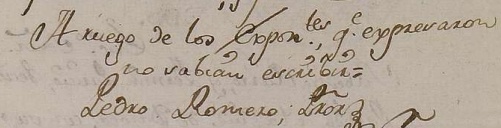 A ruego de los Expon.tes, q.e expresaron
no sabian escribir=
Pedro Romero,